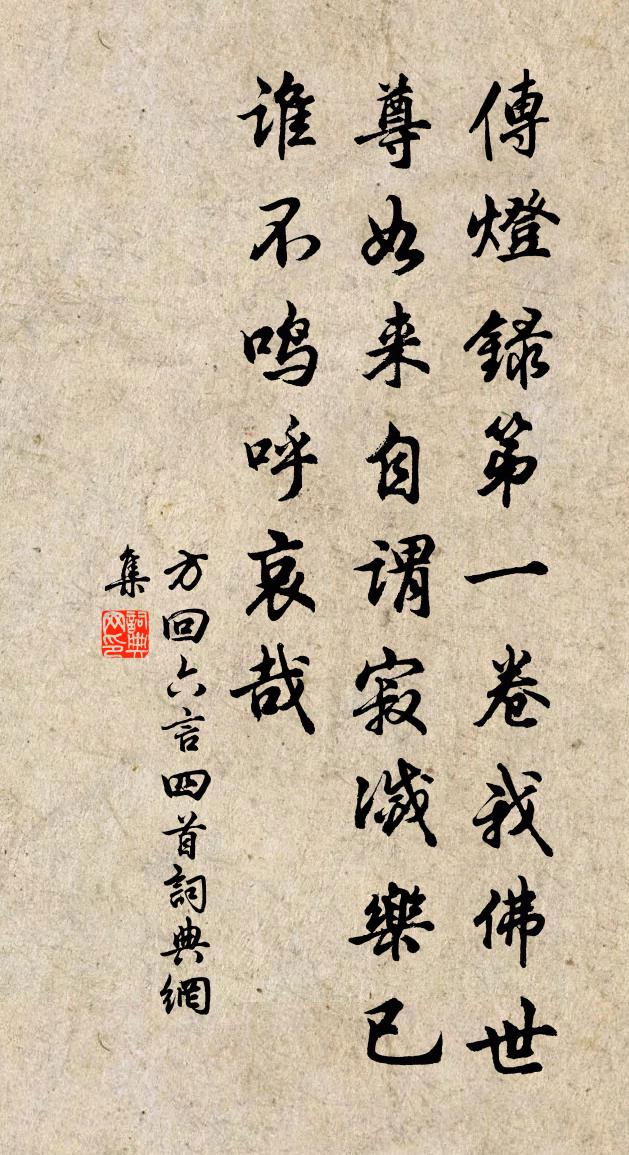 傳燈錄第一卷我佛世
尊如来自謂寂滅樂已
谁不鸣呼哀哉
方回六言四首詞典網
集
詞典
网印